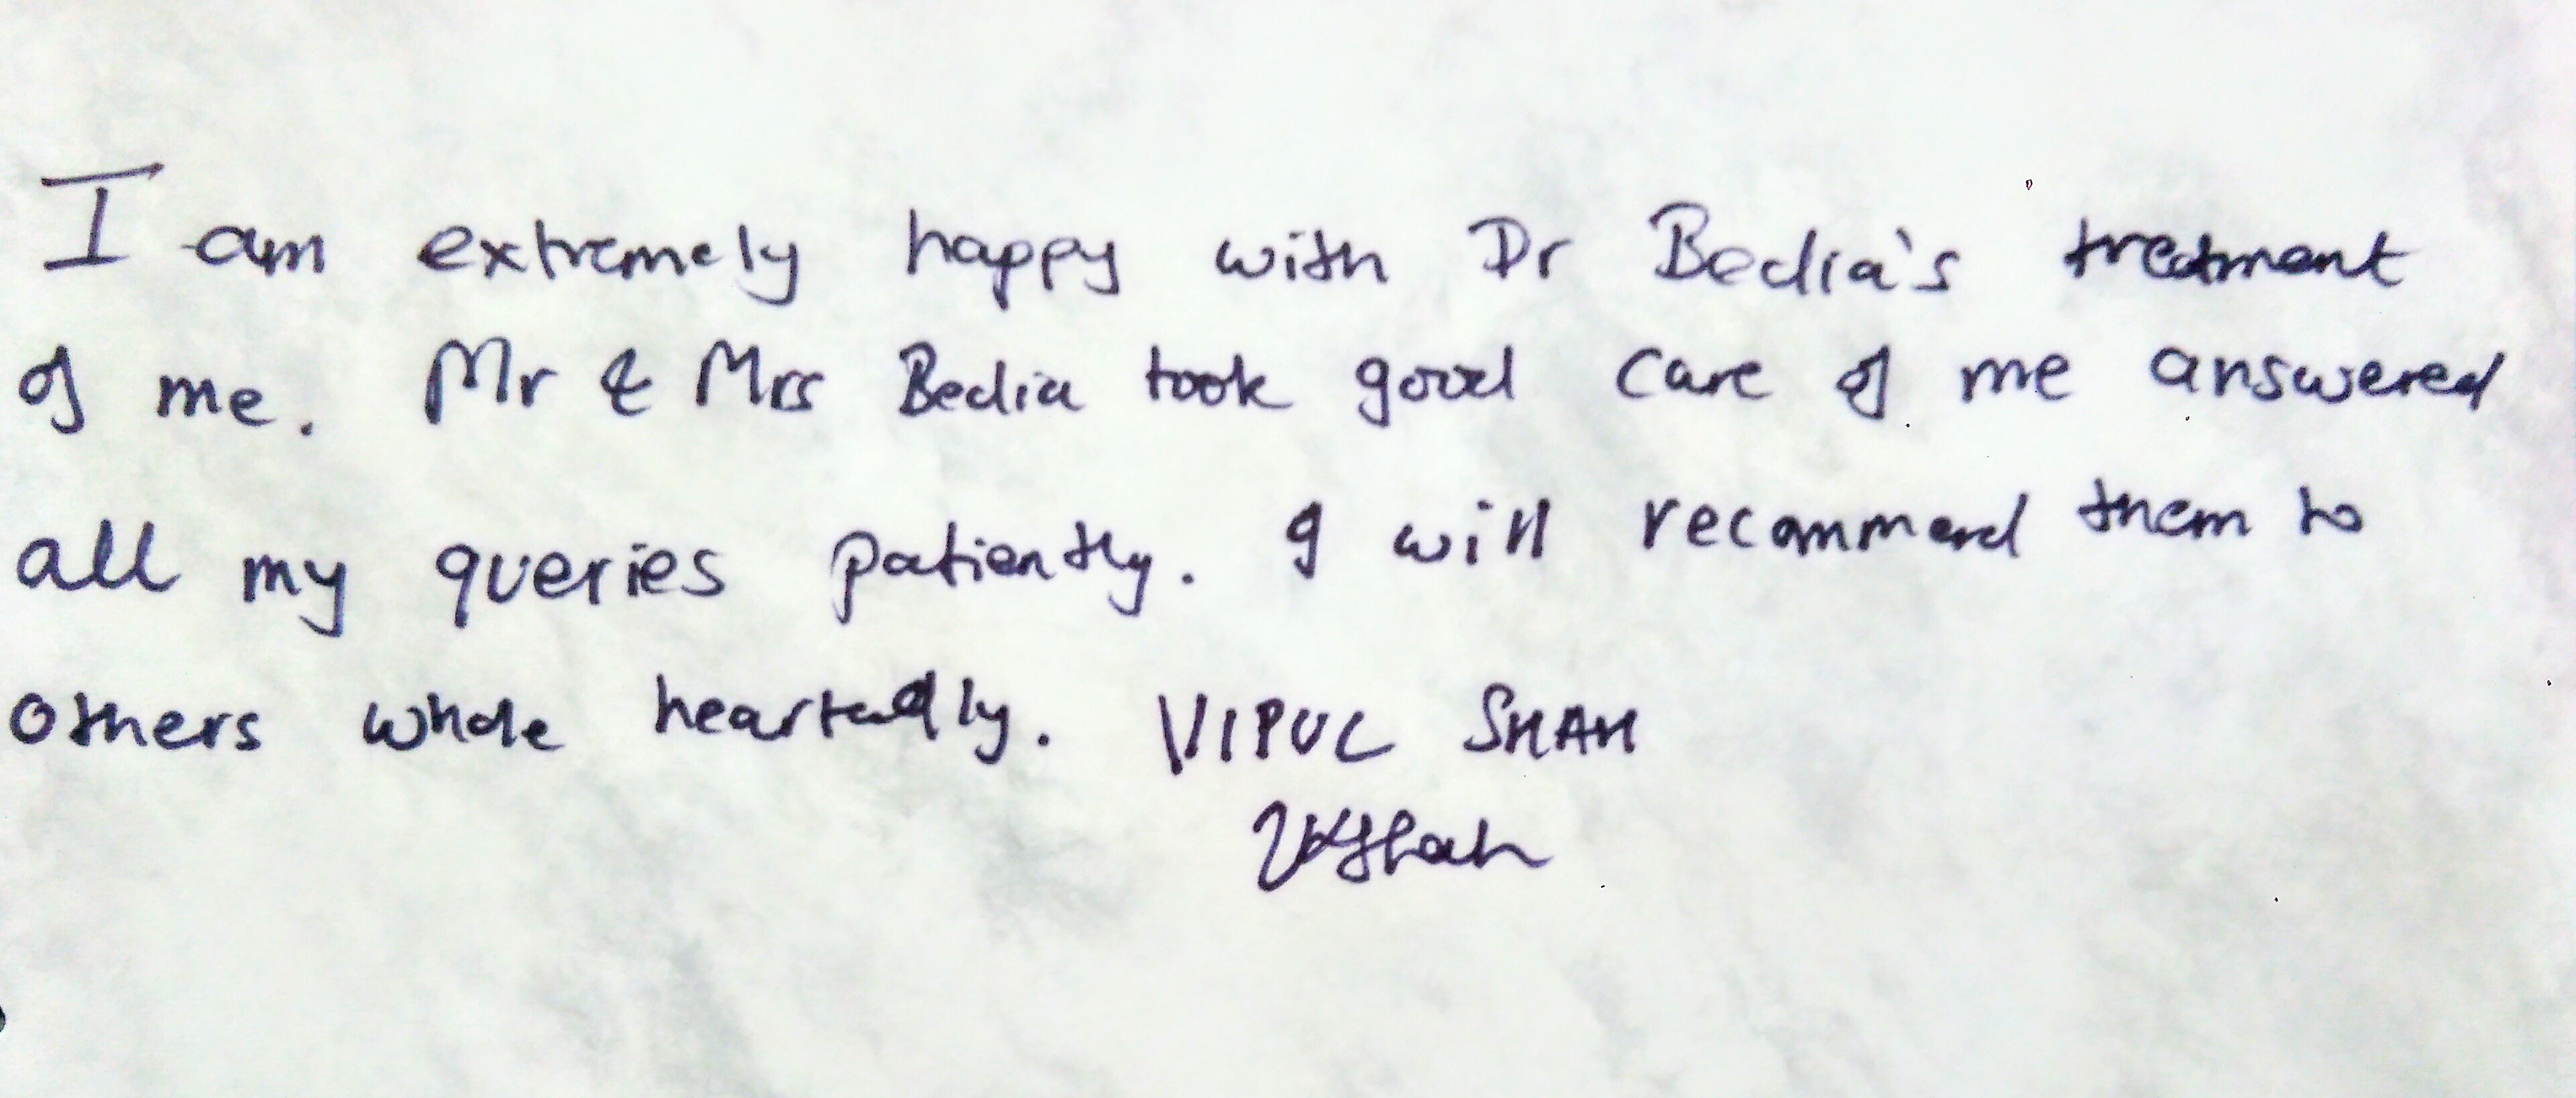 I am extremely happy with Dr Bedia's treatment
of me. Mr & Mrs Bedia took good care of me answered
all my queries patiently. I will recommend them to
others whole heartedly. VIPUL SHAH
VKShah